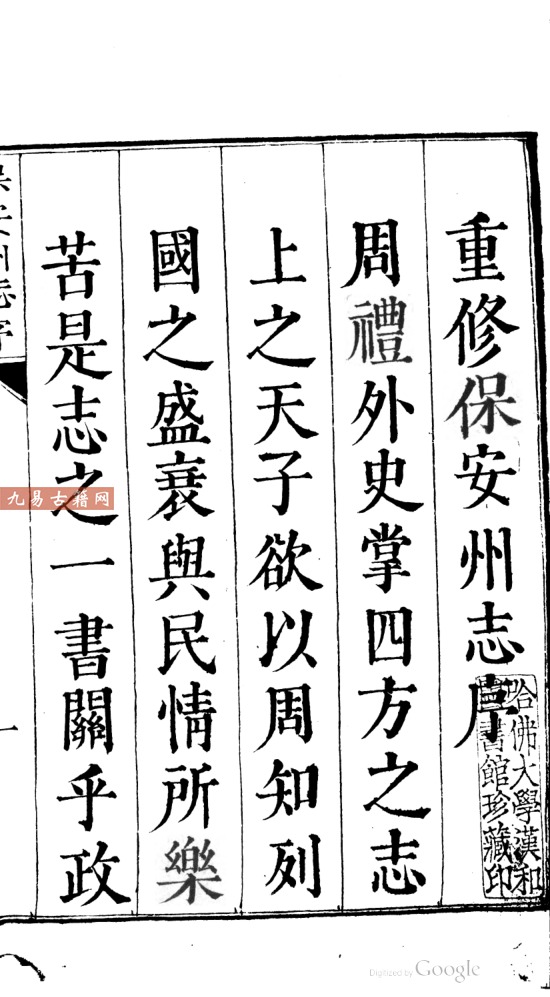 重修保安州志序
周禮外史掌四方之志
上之天子欲以周知列
國之盛衰與民情所樂
苦是志之一書關乎政
保安州志序
一
哈佛大學漢和
圖書館珍藏印
九易古籍网
Digitized by Google